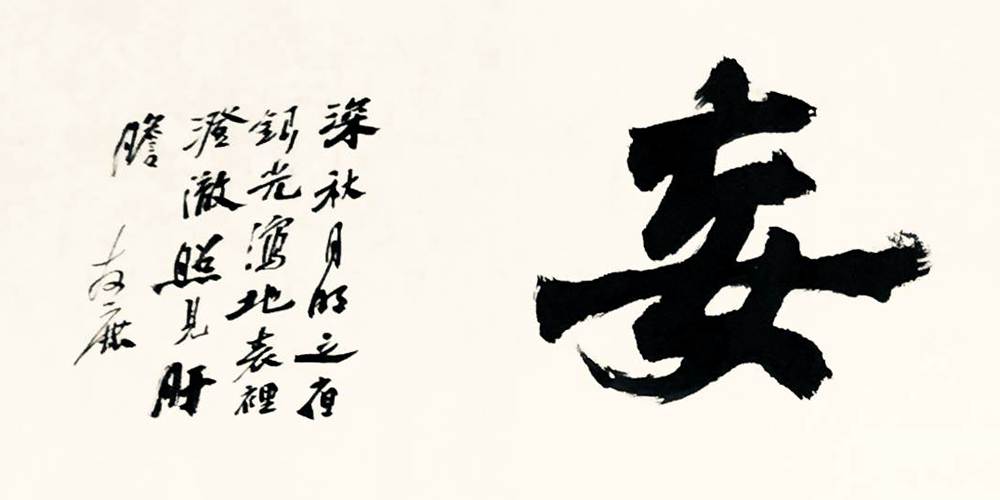 深秋月明之夜
銀光瀉地表裡
澄澈照見肝
膽